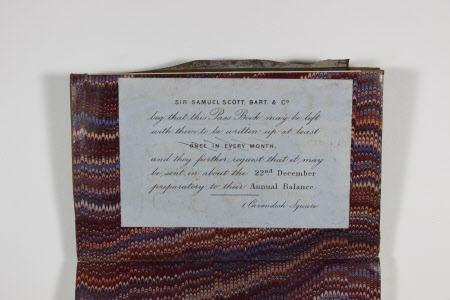 SIR SAMUEL SCOTT, BART. & Co
beg that this Pass Book may be left
with them to be written up at least
ONCE IN EVERY MONTH,
and they further request that it may
be sent in about the 22nd December
preparatory to their Annual Balance.
1, Cavendish Square